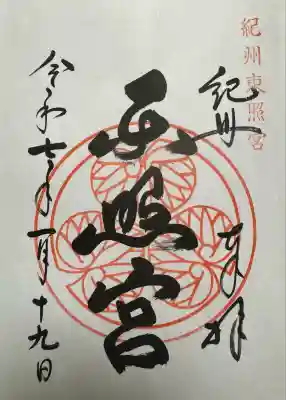 紀州東照宮
紀州
奉拝
東照宮
令和七年一月十九日